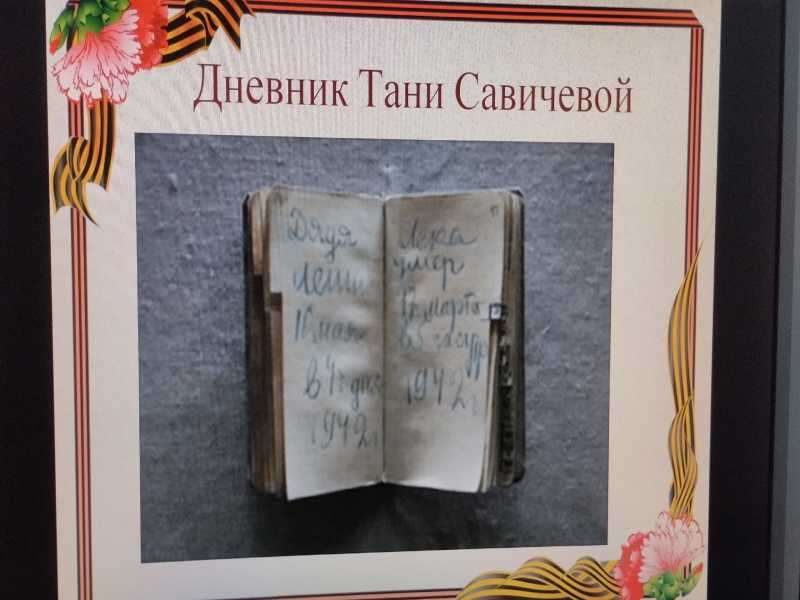 Дневник Тани Савичевой
Дядя
Леша
10 мая
в 4 ч дня
1942 г
Лека
умер
марта
в 5 час утр
1942 г